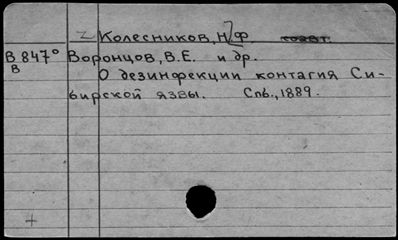 Колесников, Н.Ф. соавт.
В 847° Воронцов, В.Е. и др.
В О дезинфекции контагия Си-
бирской язвы. Спб., 1889.
+